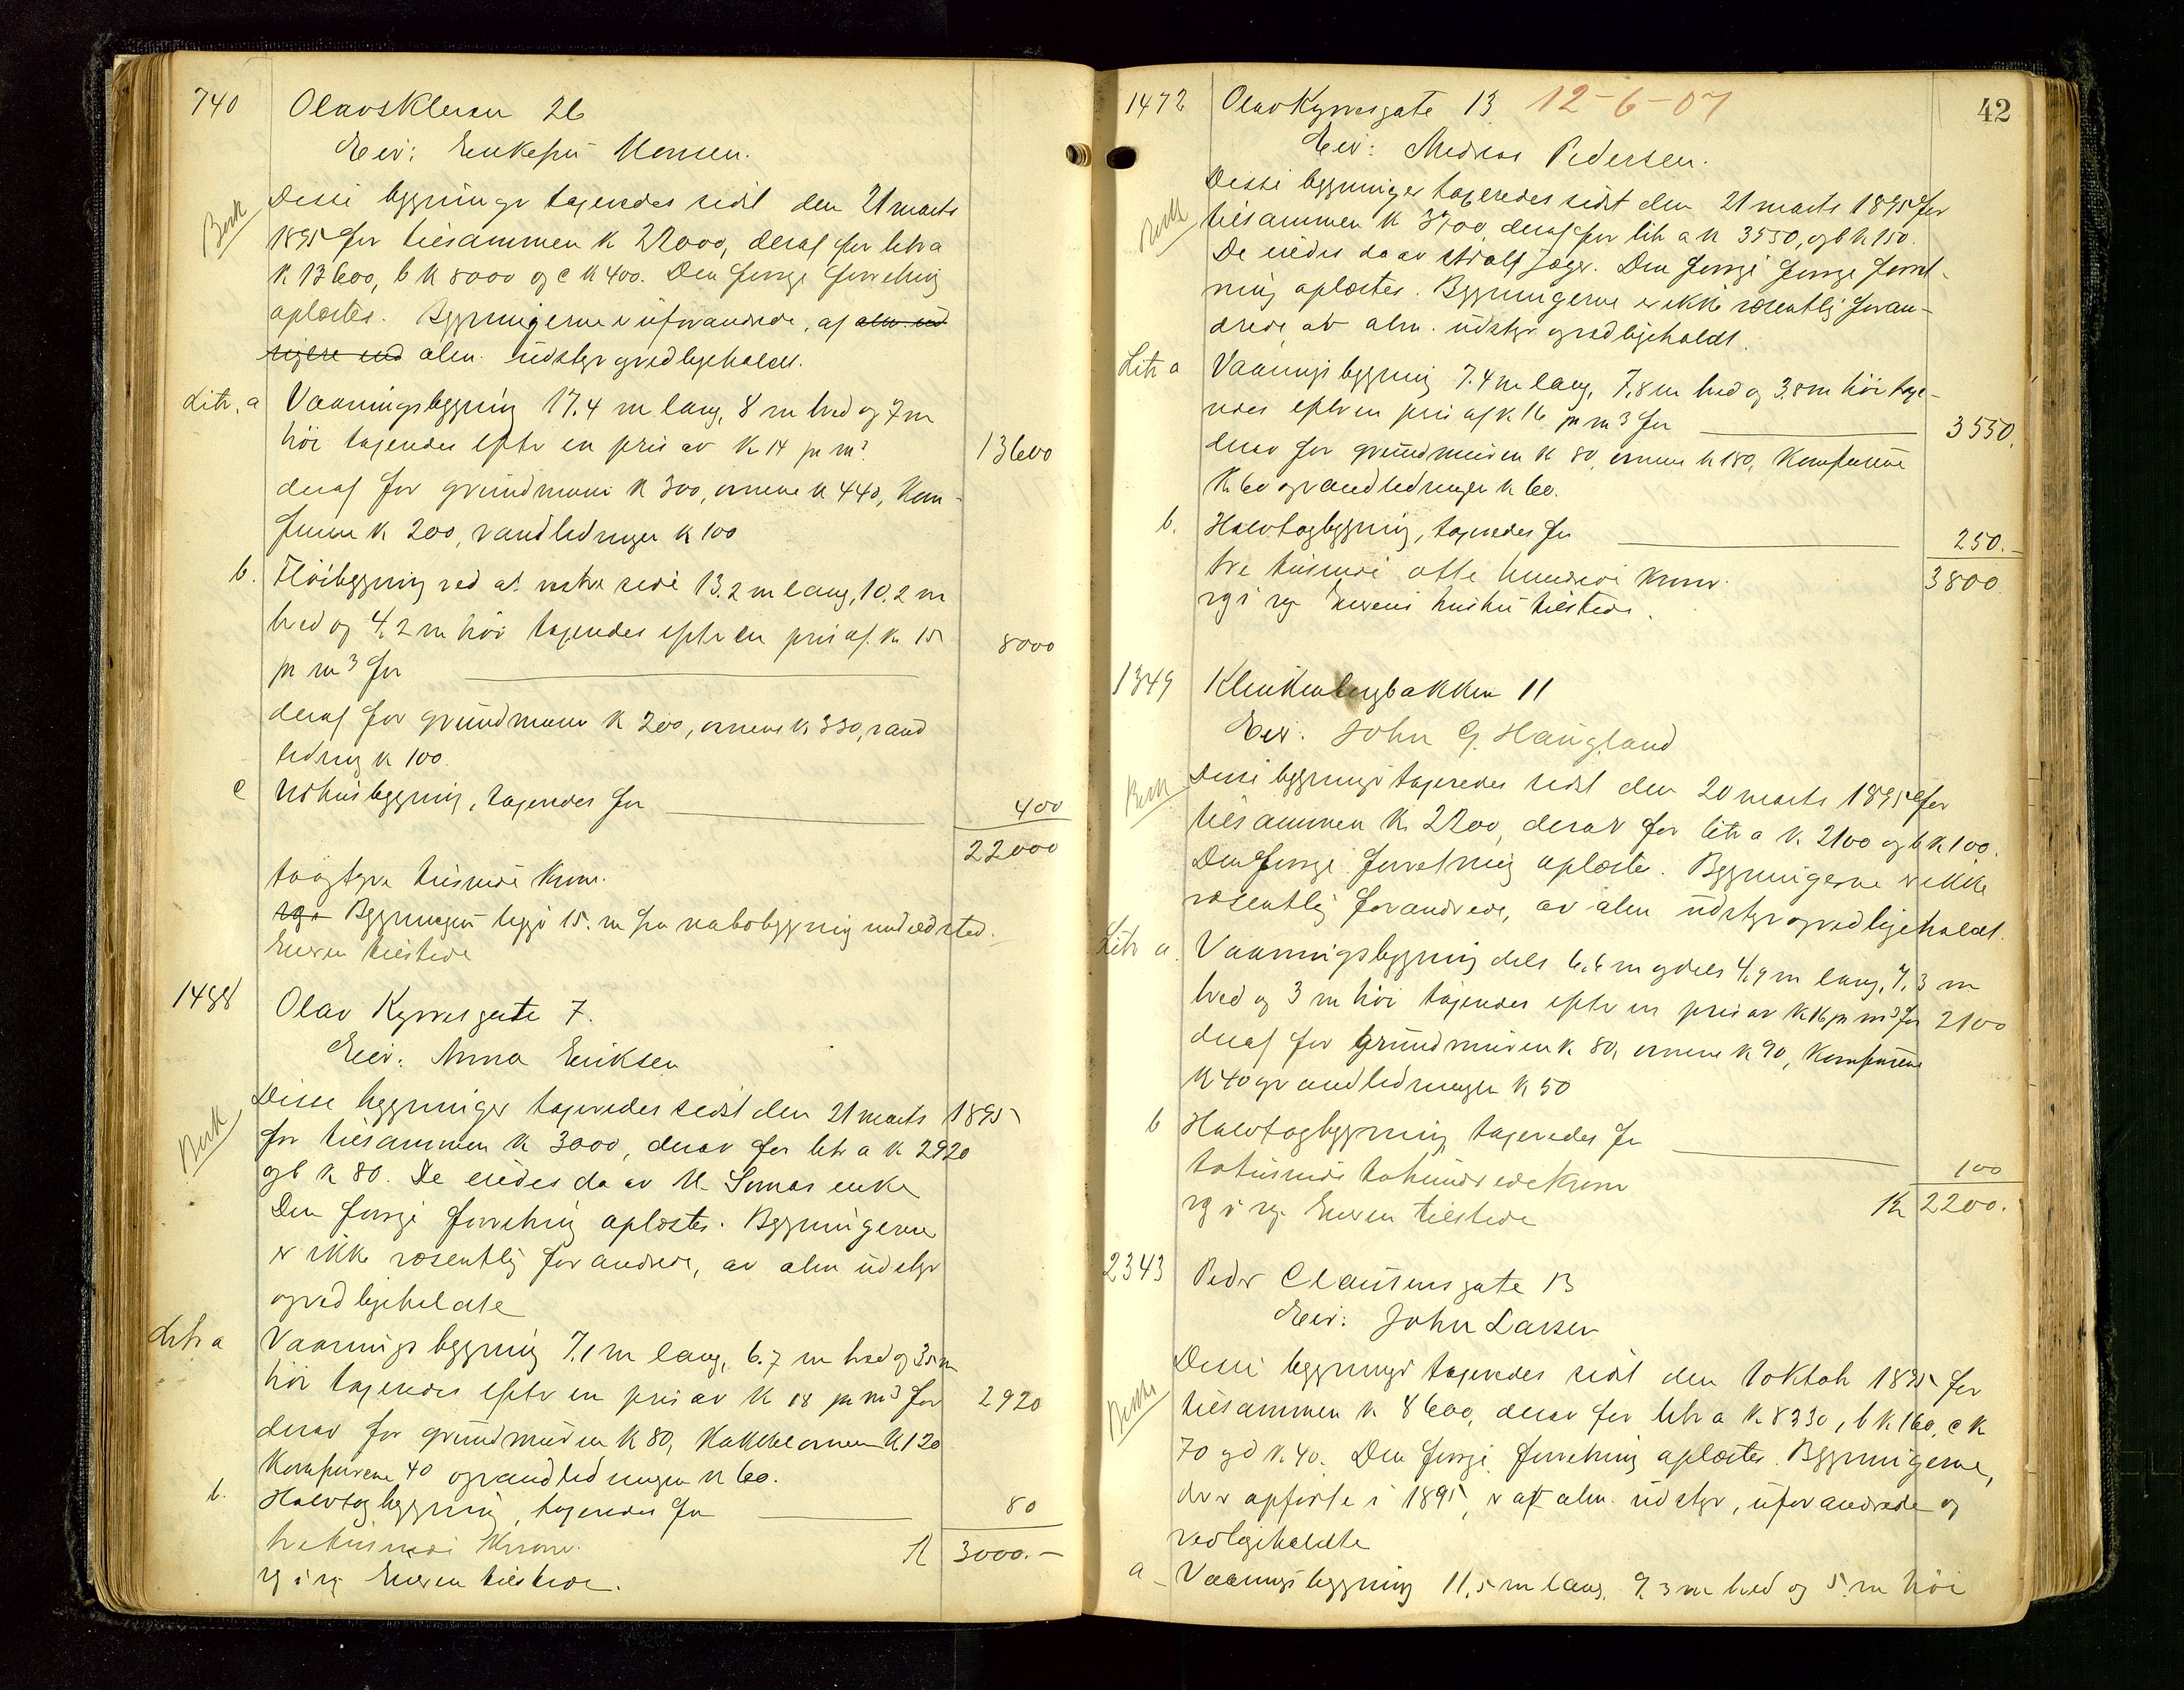 740 Olavskleven 26
Eier: Enkefru Monsen.
Besk
Disse bygninger taxeredes sidst den 21 marts
1895 for tilsammen k 22000, deraf for litr a
k 13600, b k 8000 og c k 400. Den forrige forretning
oplæstes. Bygningerne er uforandrede, af alm. ud
rigere end alm. udstyr og vedligeholdt.
Litr. a Vaaningsbygning 17.4 m lang, 8 m bred og 7 m
høi taxeredes efter en pris av k 14 pr m³ 13600
deraf for grundmuren k 300, ovnene k 440, kom-
furene k 200, vandledningen k 100
b. Fløibygning ved a's vestre side 13.2 m lang, 10.2 m
bred og 4.2 m høi taxeredes efter en pris af k 15 8000
pr m³ for
deraf for grundmuren k 200, ovnene k 330, vand
ledning k 100.
c Udhusbygning, taxeredes for 400
22000
toogtyve tusinde kroner.
Bygningen ligger 15. m fra nabobygning med ildsted.
Eieren tilstede
1488 Olav Kyrresgate 7.
Eier: Anna Eriksen
Besk
Disse bygninger taxeredes sidst den 21 marts 1895
for tilsammen k 3000, derav for litr a k 2920
og b k 80. De eiedes da av M. Sømas enke
Den forrige forretning oplæstes. Bygningerne
er ikke væsentlig forandrede, av alm udstyr
og vedligeholdte
Litr a Vaaningsbygning 7.1 m lang, 6.7 m bred og 3.5 m
høi taxeredes efter en pris av k 18 pr m³ for 2920
derav for grundmuren k 80, kakkelovnen k 120
Komfurene 40 og vandledningen k 60.
b. Halvtagbygning, taxeredes for 80
tretusinde kroner. k 3000.-
rg i rg Eieren tilstede.
42
1472 Olav Kyrresgate 13 12-6-07
Eier: Andreas Pedersen.
Besk
Disse bygninger taxeredes sidst den 21 marts 1895 for
tilsammen k 3700, deraf for litr a k 3550, og b k 150.
De eiedes da av Adolf Jæger. Den forrige forrige forret-
ning oplæstes. Bygningerne er ikke væsentlig foran-
drede, av alm. udstyr og vedligeholdt.
Litr a Vaaningsbygning 7.4 m lang, 7.8 m bred og 3.8 m høi taxe-
redes efter en pris af k 16 pr m³ for 3550.
derav for grundmuren k 80, ovnene k 180, komfurene
k 60 og vandledningen k 60.
b. Halvtagbygning, taxeredes for 250.-
tre tusinde otte hundrede kroner. 3800
rg i rg Eierens hustru tilstede.
1349 Klinkenbergbakken 11
Eier: John G. Haugland
Besk
Disse bygninger taxeredes sidst den 20 marts 1895 for
tilsammen k 2200, derav for litr a k. 2100 og b k 100.
Den forrige forretning oplæste. Bygningerne er ikke
væsentlig forandrede, av alm udstyr og vedligeholdt.
Litr a. Vaaningsbygning dels 6.6 m og dels 4.9 m lang, 7.3 m
bred og 3 m høi taxeredes efter en pris av k 16 pr m³ for 2100
deraf for grundmuren k. 80, ovnene k 90, komfurene
k 40 og vandledningen k 50
b Halvtagbygning taxeredes for 100
totusinde tohundrede kroner k 2200.
rg i rg. Eieren tilstede
2343 Peder Clausensgate 13
Eier: John Larsen
Besk
Disse bygninger taxeredes sidst den 1 oktob 1895 for
tilsammen k 8600, derav for litr a k 8330, b k 160, c k
70 og d k. 40. Den forrige forretning oplæstes. Bygningerne,
der er opførte i 1895, er af alm. udstyr, uforandrede og
vedligeholdte
a - Vaaningsbygning 11.5 m lang, 9.3 m bred og 5 m høi